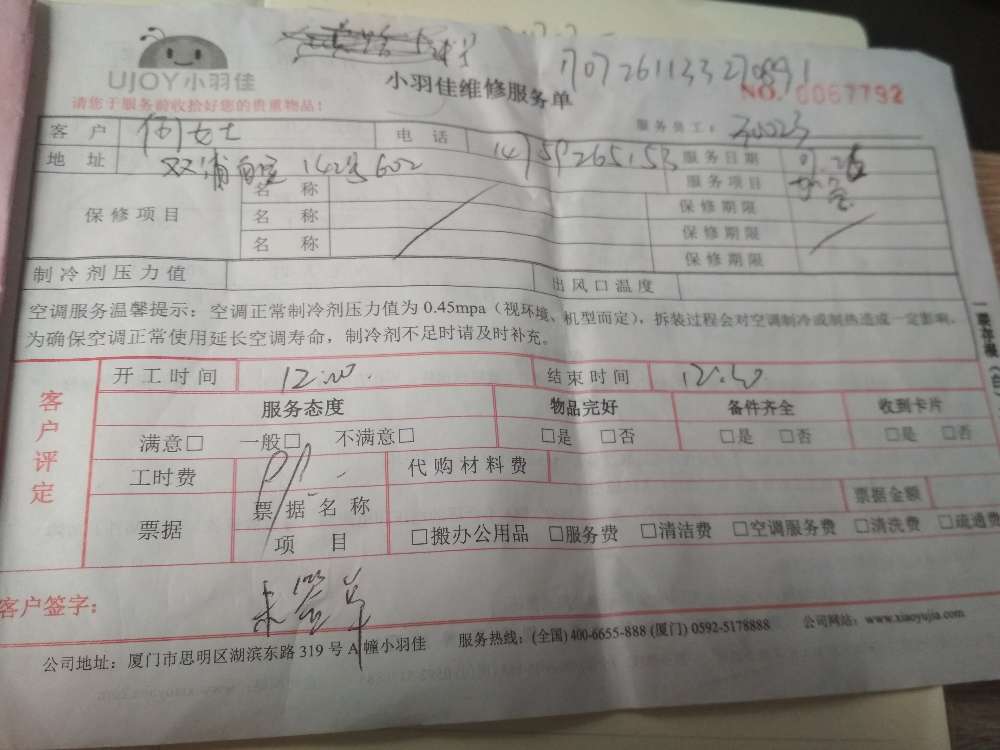 UJOY小羽佳
小羽佳维修服务单
请您于服务前收拾好您的贵重物品!
NO. 0067792
客户 何女士 电话 服务员工:
地址 142号602 服务日期
保修项目 名称 服务项目
名称 保修期限
名称 保修期限
保修期限
制冷剂压力值 出风口温度
空调服务温馨提示:空调正常制冷剂压力值为0.45mpa(视环境、机型而定),拆装过程会对空调制冷或制热造成一定影响。
为确保空调正常使用延长空调寿命,制冷剂不足时请及时补充。
客户评定
开工时间 12:00. 结束时间 12:30
服务态度 物品完好 备件齐全 收到卡片
满意□ 一般□ 不满意□ □是 □否 □是 □否 □是 □否
工时费 代购材料费
票据 票据名称 票据金额
项目 □搬办公用品 □服务费 □清洁费 □空调服务费 □清洗费 □疏通费
客户签字: 未签单
公司地址:厦门市思明区湖滨东路319号A幢小羽佳 服务热线:(全国)400-6655-888 (厦门) 0592-5178888 公司网站:www.xiaoyujia.com